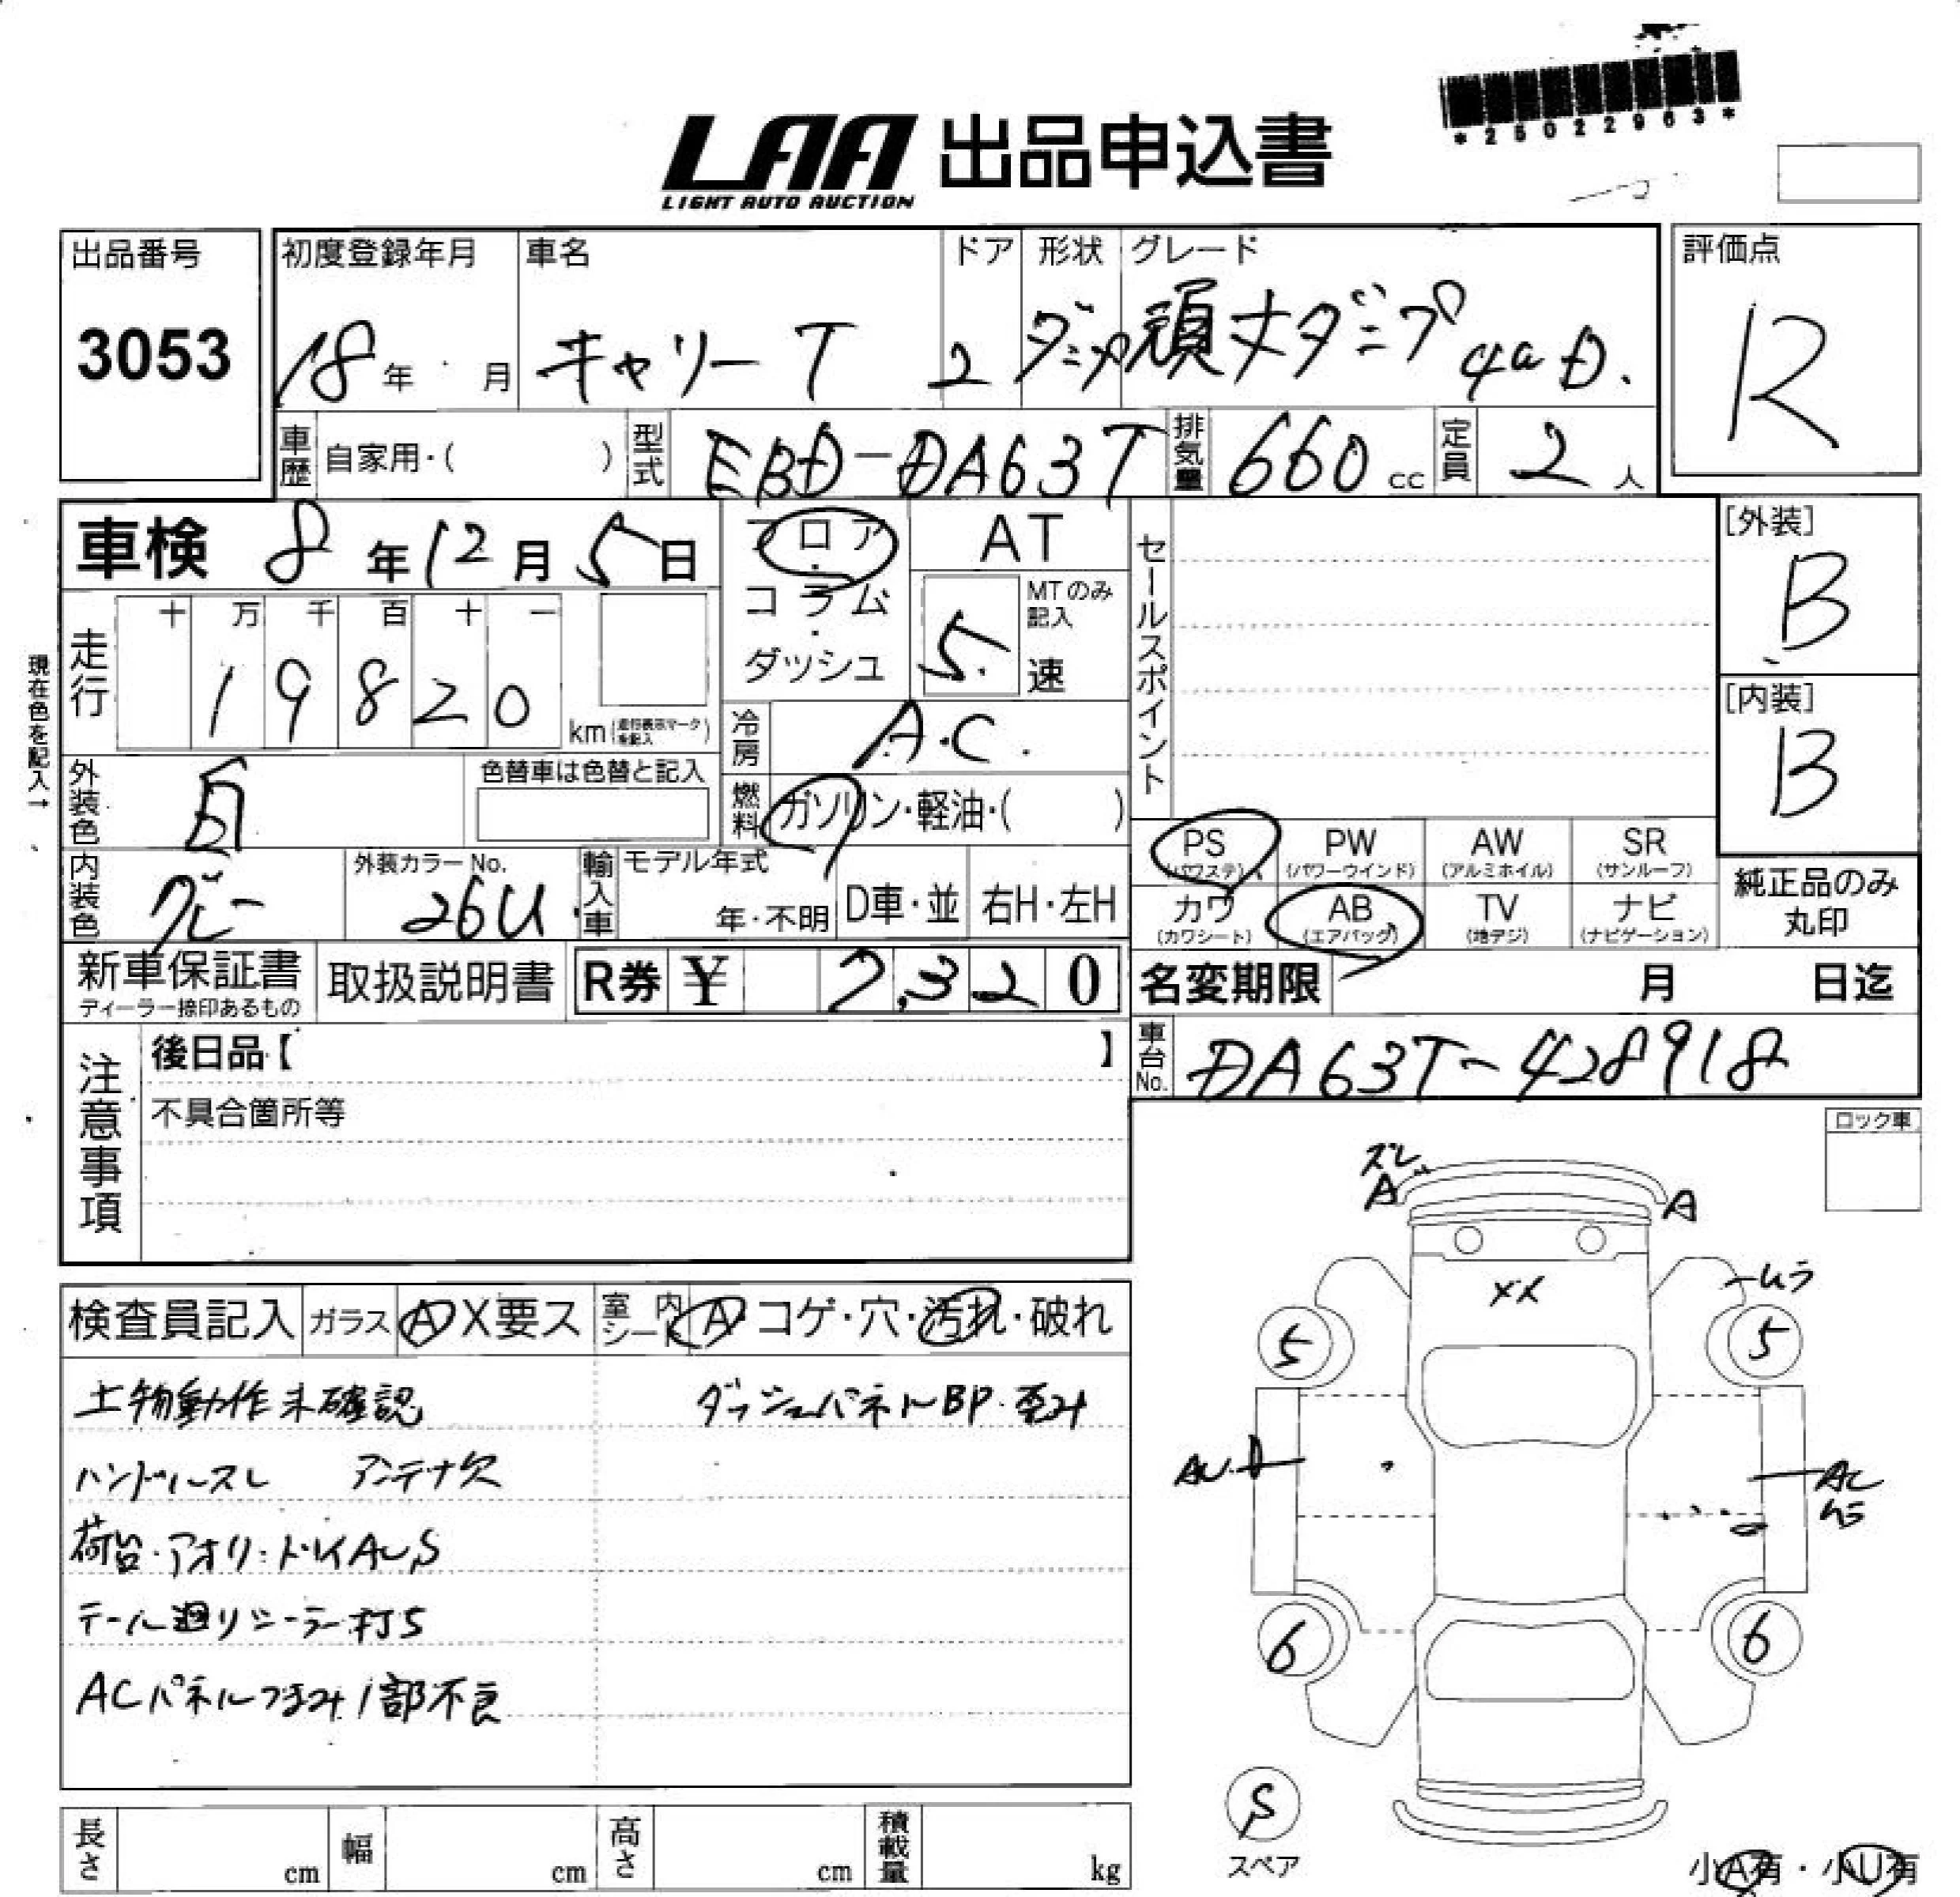 *25022963*
LAA 出品申込書
LIGHT AUTO AUCTION
出品番号
3053
初度登録年月
18年 月
車名
キャリーT
ドア
2
形状
ダンプ
グレード
頑丈ダンプ 4WD.
評価点
R
車歴 自家用・( )
型式 EBD-DA63T
排気量 660 cc
定員 2 人
車検 8年12月5日
フロア・コラム・ダッシュ
AT
MTのみ記入
5速
セールスポイント
[外装]
B
走行
十 万 千 百 十 一
1 9 8 2 0 km(走行表示マークを記入)
現在色を記入→
冷房 A.C.
[内装]
B
外装色 白
色替車は色替と記入
燃料 ガソリン・軽油・( )
PS (パワステ)
PW (パワーウインド)
AW (アルミホイル)
SR (サンルーフ)
内装色 グレー
外装カラーNo.
26U
輸入車 モデル年式
年・不明 D車・並 右H・左H
カワ (カワシート)
AB (エアバッグ)
TV (地デジ)
ナビ (ナビゲーション)
純正品のみ丸印
新車保証書
ディーラー捺印あるもの
取扱説明書
R券 ¥ 7,320
名変期限 月 日迄
車台No. DA63T-428918
注意事項
後日品【 】
不具合箇所等
ロック車
検査員記入 ガラス A X要ス 室内シート A・コゲ・穴・汚れ・破れ
土物動作未確認
ダッシュパネルBP.歪み
ハンドルスレ アンテナ欠
荷台・アオリ:ドレイAU,S
テール廻りシーラー打ち
ACパネルつまみ1部不良
スレ
A
A
XX
ムラ
5
5
AU.
AU
ムラ
6
6
S
スペア
小A有・小U有
長さ cm 幅 cm 高さ cm 積載量 kg